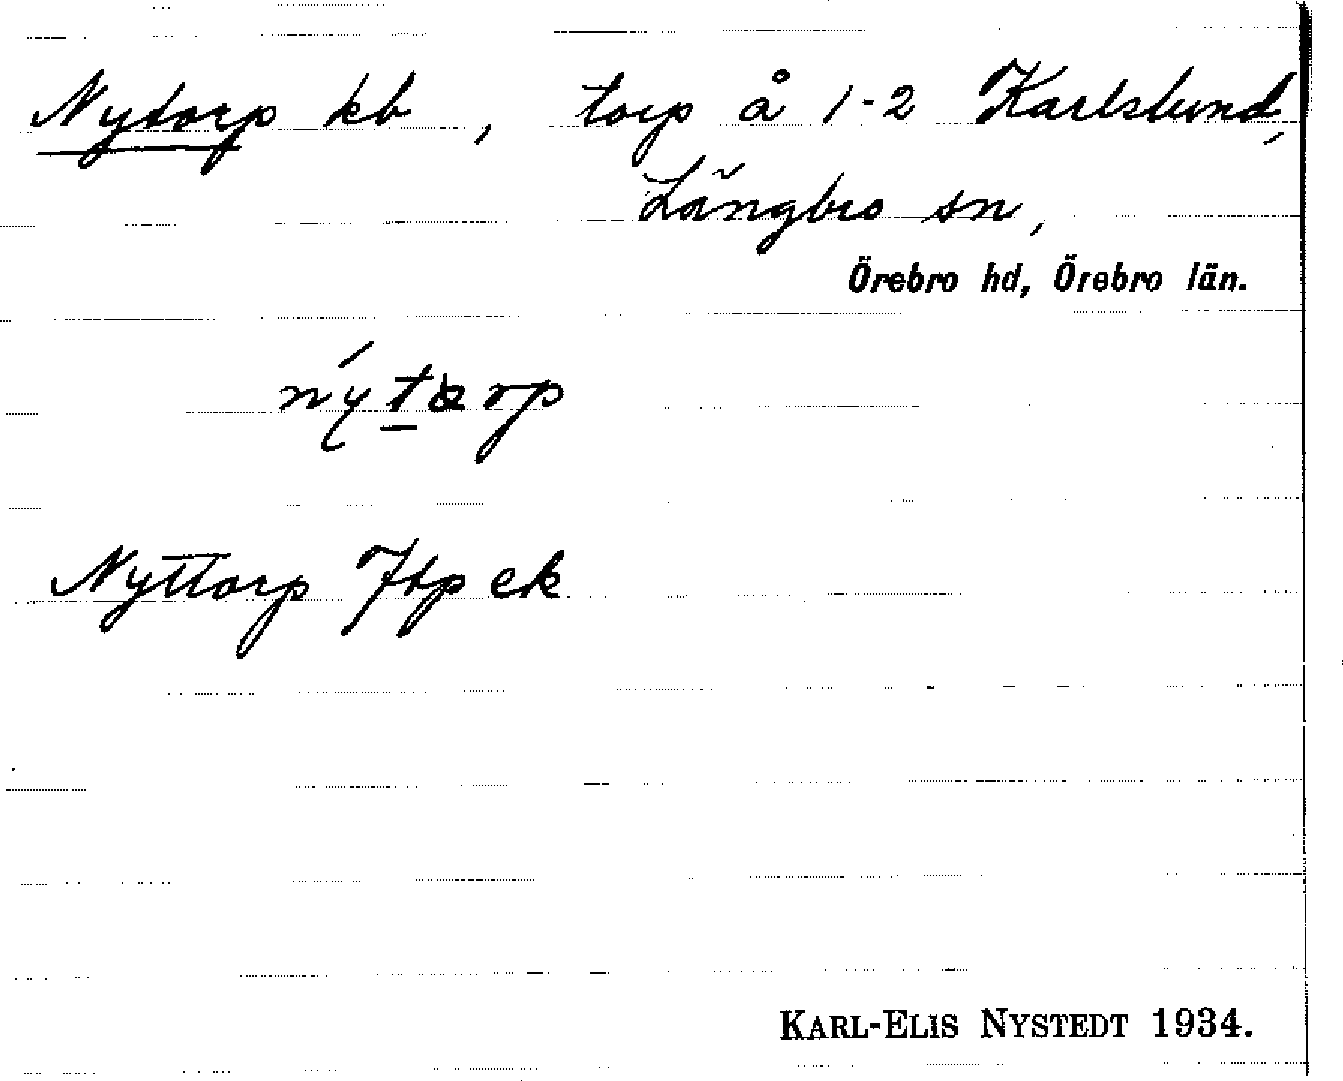 Nytorp kb, torp å 1-2 Karlslund,
Längbro sn,
Örebro hd, Örebro län.
Nyttorp Jbp ek
KARL-ELIS NYSTEDT 1934.